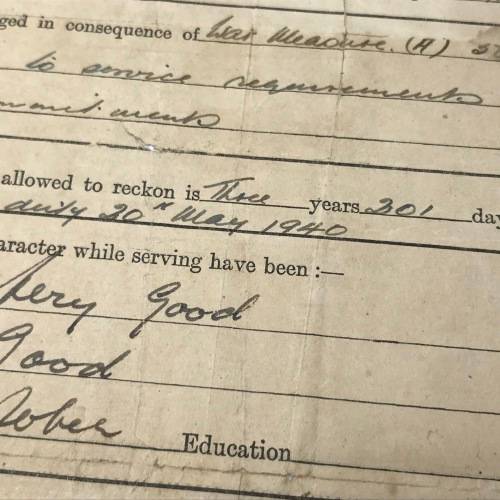 ged in consequence of War Measure. (A)
to service requirements
mmitments
allowed to reckon is Three years 301 day
duty 20th May 1940
aracter while serving have been :—
Very Good
Good
Sober
Education